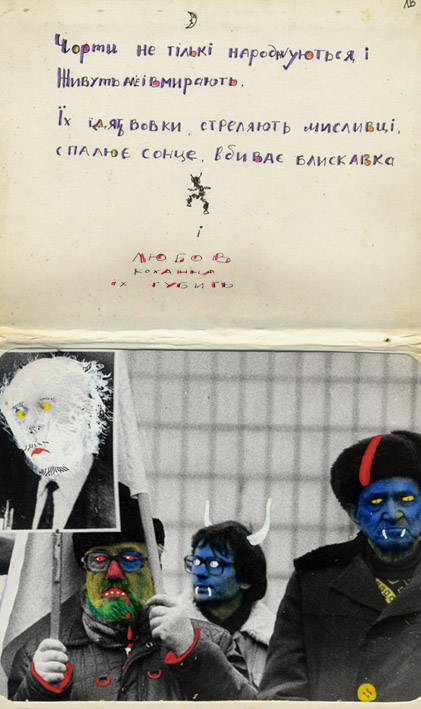 Чорти не тількі народжуються, і
живуть але і вмирають.
Їх їдять вовки, стреляють мисливці,
спалює сонце, вбиває блискавка
і
любов
кохання
їх губить